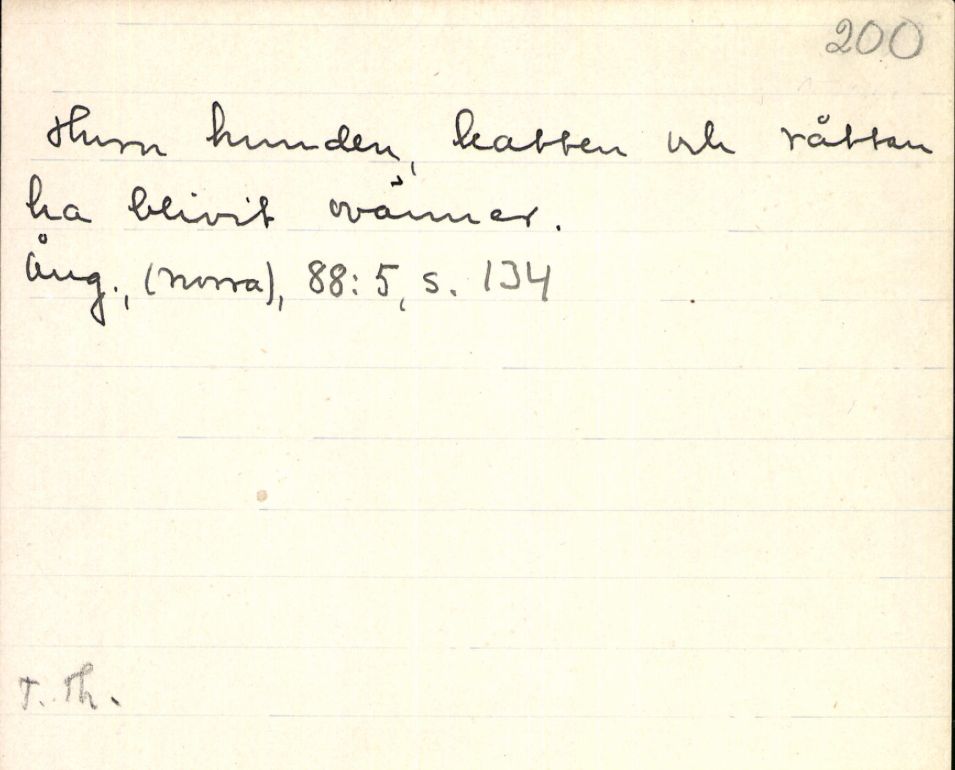 200
Huru hunden, katten och råttan
ha blivit ovänner.
Ång., (norra), 88:5, s. 134
T. Th.